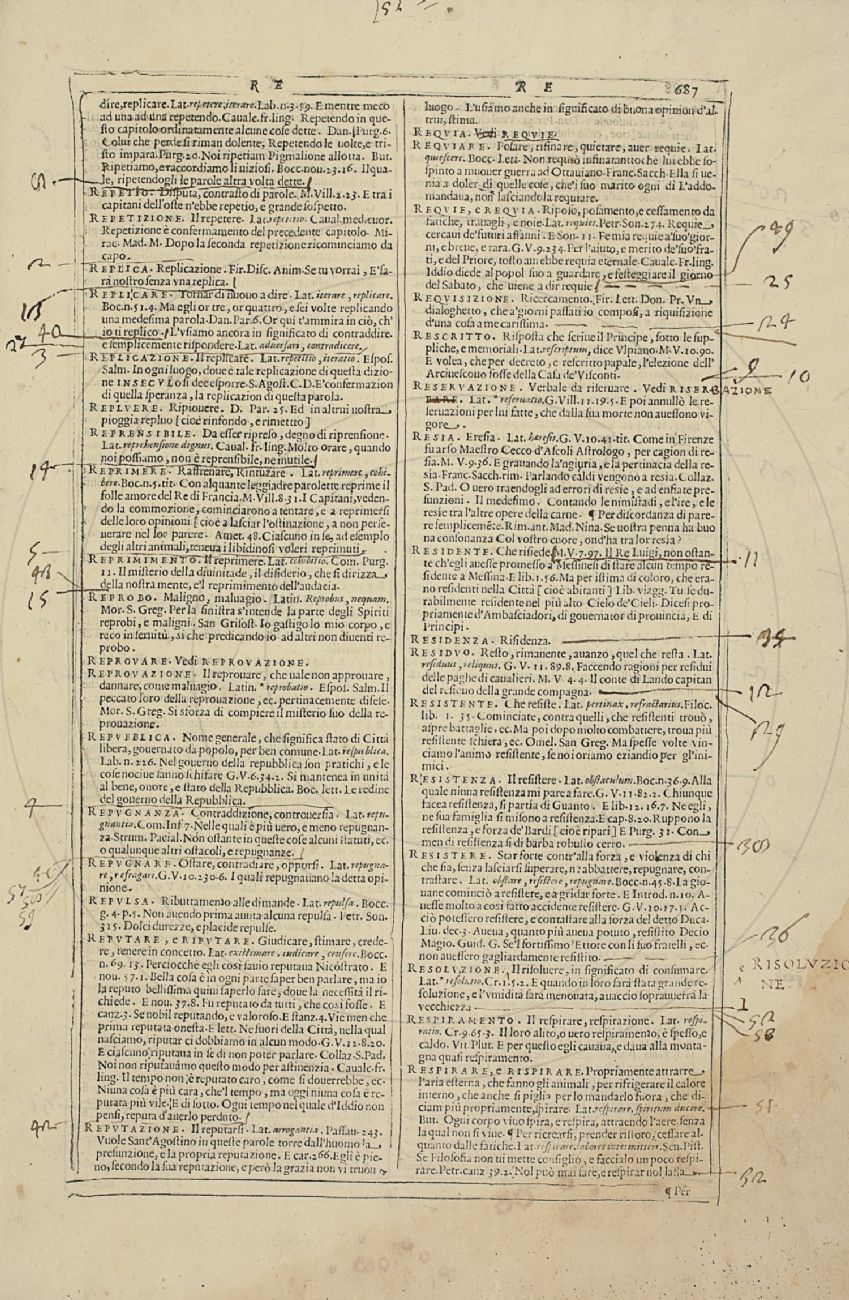 R E
R E
687
dire, replicare. Lat. repetere, iterare. Lab. n. 3-59. E mentre meco
ad una ad una repetendo. Caualc. fr. ling. Repetendo in que-
sto capitolo ordinatamente alcune cose dette. Dan. Purg. 6.
Colui che perde si riman dolente, Repetendo le uolte, e tri-
sto impara. Purg. 20. Noi ripetiam Pigmalione allotta. But.
Ripetiamo, e raccordiamo li uiziosi. Bocc. nou. 23. 16. Il qua-
le, ripetendogli le parole altra volta dette.
REPETIO. Disputa, contrasto di parole. M. Vill. 2. 23. E tra i
capitani dell'oste n'ebbe repetio, e grande sospetto.
REPETIZIONE. Il repetere. Lat. repetitio. Caual. med. cuor.
Repetizione è confermamento del precedente capitolo. Mi-
rac. Mad. M. Dopo la seconda repetizione ricominciamo da
capo.
REPLICA. Replicazione. Fir. Disc. Anim. Se tu vorrai, E' sa-
rà nostro senza vna replica.
REPLICARE. Tornar di nuouo a dire. Lat. iterare, replicare.
Bocc. n. 51. 4. Ma egli or tre, or quattro, e sei volte replicando
una medesima parola. Dan. Par. 6. Or qui t'ammira in ciò, ch'
io ti replico. L'vsiamo ancora in significato di contraddire.
e semplicemente rispondere. Lat. aduersari, contradicere.
REPLICAZIONE. Il replicare. Lat. repetitio, iteratio. Espos.
Salm. In ogni luogo, doue è tale replicazione di questa dizio-
ne IN SECVLO si dee esporre. S. Agost. C. D. E' confermazion
di quella speranza, la replicazion di questa parola.
REPLVERE. Ripiouere. D. Par. 25. Ed in altrui nostra
pioggia repluo [cioè rinfondo, e rimetto]
REPRENSIBILE. Da esser ripreso, degno di riprensione.
Lat. reprehensione dignus. Caual. fr. ling. Molto orare, quando
noi possiamo, non è reprensibile, ne inutile.
REPRIMERE. Raffrenare, Rintuzare. Lat. reprimere, cohi-
bere. Boc. n. 5. tit. Con alquante leggiadre parolette reprime il
folle amore del Re di Francia. M. Vill. 8. 31. I Capitani, veden-
do la commozione, cominciarono a tentare, e a reprimersi
delle loro opinioni [cioè a lasciar l'ostinazione, a non perse-
uerare nel lor parere. Amet. 48. Ciascuno in se, ad esemplo
degli altri animali, teneua i libidinosi voleri reprimuti.
REPRIMIMENTO. Il reprimere. Lat. cohibitio. Com. Purg.
11. Il misterio della diuinitade, il disiderio, che si dirizza
della nostra mente, e'l reprimimento dell'audacia.
REPROBO. Maligno, maluagio. Latin. Reprobus, nequam.
Mor. S. Greg. Per la sinistra s'intende la parte degli Spiriti
reprobi, e maligni. San Grisost. Io gastigo lo mio corpo, e
reco in seruitù, sì che predicando io ad altri non diuenti re-
probo.
REPROVARE. Vedi REPROVAZIONE.
REPROVAZIONE. Il reprouare, che uale non approuare,
dannare, come maluagio. Latin. * reprobatio. Espos. Salm. Il
peccato loro della reprouazione, ec. pertinacemente difese.
Mor. S. Greg. Si sforza di compiere il misterio suo della re-
prouazione.
REPVBBLICA. Nome generale, che significa stato di Città
libera, gouernato da popolo, per ben comune. Lat. respublica.
Lab. n. 226. Nel gouerno della repubblica son pratichi, e le
cose nociue sanno schifare G. V. 6. 34. 2. Si mantenea in unità
al bene, onore, e stato della Repubblica. Boc. lett. Le redine
del gouerno della Repubblica.
REPVGNANZA. Contraddizione, controuersia. Lat. repu-
gnantia. Com. Inf. 7. Nelle quali è più uero, e meno repugnan-
za. Strum. Pacial. Non ostante in queste cose alcuni statuti, ec.
o qualunque altri ostacoli, e repugnanze.
REPVGNARE. Ostare, contradiare, opporsi. Lat. repugna-
re, refragari. G. V. 10. 230. 6. I quali repugnauano la detta opi-
nione.
REPVLSA. Ributtamento alle dimande. Lat. repulsa. Bocc.
g. 4. p. 5. Non auendo prima auuta alcuna repulsa. Petr. Son.
315. Dolci durezze, e placide repulse.
REPVTARE, e RIPVTARE. Giudicare, stimare, crede-
re, tenere in concetto. Lat. existimare, iudicare, censere. Bocc.
n. 69. 13. Perciocchè egli così sauio reputaua Nicostrato. E
nou. 57. 1. Bella cosa è in ogni parte saper ben parlare, ma io
la reputo bellissima quiui saperlo fare, doue la necessità il ri-
chiede. E nou. 37. 8. Fu reputato da tutti, che così fosse. E
canz. 3. Se nobil reputando, e valoroso. E stanz. 4. Vie men che
prima reputata onesta. E lett. Ne fuori della Città, nella qual
nasciamo, riputar ci dobbiamo in alcun modo. G. V. 12. 8. 20.
E ciascuno riputaua in se di non poter parlare. Collaz. S. Pad.
Noi non riputauamo questo modo per astinenzia. Caualc. fr.
ling. Il tempo non è reputato caro, come si douerrebbe, ec.
Niuna cosa è più cara, che'l tempo, ma oggi niuna cosa è re-
putata più vile. E di sotto. Ogni tempo nel quale d'Iddio non
pensi, reputa d'auerlo perduto.
REPVTAZIONE. Il reputarsi. Lat. arrogantia. Passau. 243.
Vuole Sant'Agostino in queste parole torre dall'huomo la
presunzione, e la propria reputazione. E car. 266. Egli è pie-
no, secondo la sua reputazione, e però la grazia non vi truou
luogo. L'usiamo anche in significato di buona opinion d'al-
trui, stima.
REQVIA. Vedi REQVIE.
REQVIARE. Posare, rifinare, quietare, auer requie. Lat.
quiescere. Bocc. lett. Non requiò insinattanto che lui ebbe so-
spinto a muouer guerra ad Ottauiano. Franc. Sacch. Ella si ue-
nia a doler di quelle cose, che'l suo marito ogni dì L'addo-
mandaua, non lasciandola requiare.
REQVIE, E REQVIA. Riposo, posamento, e cessamento da
fatiche, trauagli, e noie. Lat. requies. Petr. Son. 274. Requie
cercaui de' futuri affanni. E Son. 11. Fe mia requie a suo' gior-
ni, e breue, e rara. G. V. 9. 234. Per l'aiuto, e merito de' suo' fra-
ti, e del Priore, tosto aurebbe requia eternale. Caualc. Fr. ling.
Iddio diede al popol suo a guardare, e festeggiare il giorno
del Sabato, che uiene a dir requie.
REQVISIZIONE. Ricercamento. Fir. Lett. Don. Pr. Vn
dialoghetto, che a' giorni passati io composi, a riquisizione
d'una cosa a me carissima.
RESCRITTO. Risposta che scriue il Principe, sotto le sup-
pliche, e memoriali. Lat. rescriptum, dice Vlpiano. M. V. 10. 90.
E volea, che per decreto, e rescritto papale, l'elezione dell'
Arciuescouo fosse della Casa de' Visconti.
RESERVAZIONE. Verbale da riseruare. Vedi RISERBAZIONE
Lat. * reseruatio. G. Vill. 11. 19. 5. E poi annullò le re-
seruazioni per lui fatte, che dalla sua morte non auessono vi-
gore.
RESIA. Eresia. Lat. hæresis. G. V. 10. 41. tit. Come in Firenze
fu arso Maestro Cecco d'Ascoli Astrologo, per cagion di re-
sia. M. V. 9. 36. E grauando la'ngiuria, e la pertinacia della re-
sia. Franc. Sacch. rim. Parlando caldi vengono a resia. Collaz.
S. Pad. O uero traendogli ad errori di resie, e ad enfiate pre-
sunzioni. Il medesimo. Contando le nimistadi, e l'ire, e le
resie tra l'altre opere della carne. ¶ Per discordanza di pare-
re semplicemẽte. Rim. ant. Mad. Nina. Se uostra penna ha buo
na consonanza Col vostro cuore, ond'ha tra lor resia?
RESIDENTE. Che risiede. M. V. 7. 97. Il Re Luigi, non ostan-
te ch'egli auesse promesso a' Messinesi di stare alcun tempo re-
sidente a Messina. E lib. 1. 56. Ma per istima di coloro, che era-
no residenti nella Città [cioè abitanti] Lib. viagg. Tu se du-
rabilmente residente nel più alto Cielo de' Cieli. Dicesi pro-
priamente d'Ambasciadori, di gouernator di prouincia, E di
Principi.
RESIDENZA. Risidenza.
RESIDVO. Resto, rimanente, auanzo, quel che resta. Lat.
residuus, reliquus. G. V. 11. 89. 8. Faccendo ragioni per residui
delle paghe di caualieri. M. V. 4. 4. Il conte di Lando capitan
del residuo della grande compagna.
RESISTENTE. Che resiste. Lat. pertinax, refractarius. Filoc.
lib. 1. 35. Cominciate, contra quelli, che resistenti trouò,
aspre battaglie, ec. Ma poi dopo molto combattere, troua più
resistente schiera, ec. Omel. San Greg. Ma spesse volte vin-
ciamo l'animo resistente, se noi oriamo eziandio per gl'ini-
mici.
RESISTENZA. Il resistere. Lat. obstaculum. Boc. n. 36. 9. Alla
quale niuna resistenza mi parea fare. G. V. 11. 82. 2. Chiunque
facea resistenza, si partia di Guanto. E lib. 12. 16. 7. Ne egli,
ne sua famiglia si misono a resistenza. E cap. 8. 20. Ruppono la
resistenza, e forza de' Bardi [cioè ripari] E Purg. 31. Con
men di resistenza si dibarba robusto cerro.
RESISTERE. Star forte contr'alla forza, e violenza di chi
che sia, senza lasciarsi superare, n'abbattere, repugnare, con-
trastare. Lat. obstare, resistere, repugnare. Bocc. n. 45. 8. La gio-
uane cominciò a resistere, e a gridar forte. E Introd. n. 10. A-
uesse molto a così fatto accidente resistere. G. V. 10. 17. 1. Ac-
ciò potessero resistere, e contastare alla forza del detto Duca.
Liu. dec. 3. Aueua, quanto più aueua potuto, resistito Decio
Magio. Guid. G. Se'l fortissimo 'Ettore con li suo fratelli, ec.
non auessero gagliardamente resistito.
RESOLVZIONE. Il risoluere, in significato di consumare.
Lat. * resolutio. Cr. 1. 5. 2. E quando in loro sarà stata grande re-
soluzione, e l'vmidità sarà menouata, auaccio soprauuerrà la
vecchiezza
RESPIRAMENTO. Il respirare, respirazione. Lat. respi-
ratio. Cr. 9. 65. 3. Il loro alito, o uero respiramento, è spesso, e
caldo. Vit. Plut. E per questo egli cauaua, e daua alla monta-
gna quasi respiramento.
RESPIRARE, e RISPIRARE. Propriamente attrarre
l'aria esterna, che fanno gli animali, per rifrigerare il calore
interno, che anche si piglia per lo mandarlo fuora, che di-
ciam più propriamente, spirare. Lat. respirare, spiritum ducere.
But. Ogni corpo viuo spira, e respira, attraendo l'aere, senza
la qual non si viue. ¶ Per ricrearsi, prender ristoro, cessare al-
quanto dalle fatiche. Lat. respirare, laborem intermittere. Sen. Pist.
Se Filosofia non ti mette consiglio, e faccialo un poco respi-
rare. Petr. canz. 39. 2. Nol può mai fare, e respirar nol lassa
¶ Per
2
40
27
3
19
5
48
15
42
49
25
24
9
10
11
12
29
30
36
RISOLVZIO
NE.
1
52
58
51
52